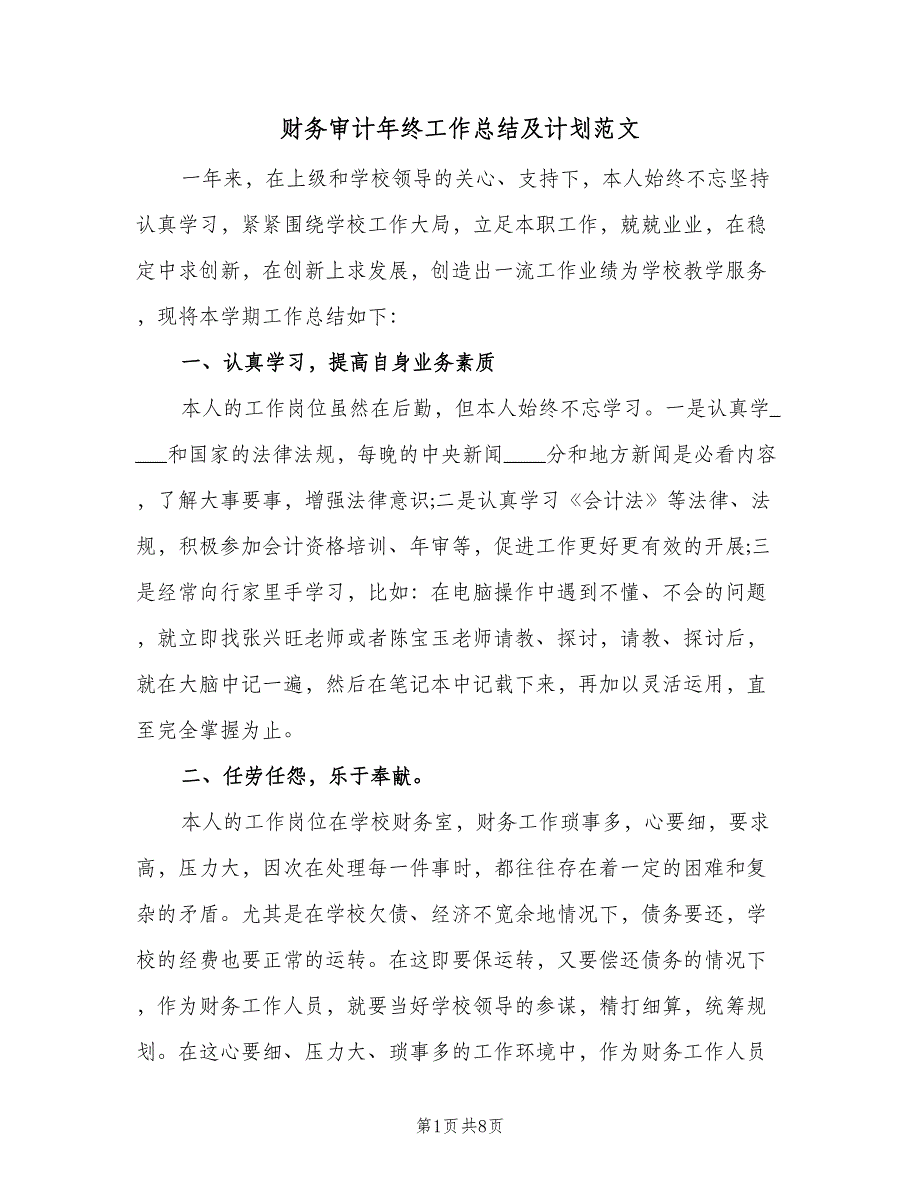 财务审计年终工作总结及计划范文
一年来，在上级和学校领导的关心、支持下，本人始终不忘坚持
认真学习，紧紧围绕学校工作大局，立足本职工作，兢兢业业，在稳
定中求创新，在创新上求发展，创造出一流工作业绩为学校教学服务
，现将本学期工作总结如下：
一、认真学习，提高自身业务素质
本人的工作岗位虽然在后勤，但本人始终不忘学习。一是认真学_
___和国家的法律法规，每晚的中央新闻____分和地方新闻是必看内容
，了解大事要事，增强法律意识;二是认真学习《会计法》等法律、法
规，积极参加会计资格培训、年审等，促进工作更好更有效的开展;三
是经常向行家里手学习，比如：在电脑操作中遇到不懂、不会的问题
，就立即找张兴旺老师或者陈宝玉老师请教、探讨，请教、探讨后，
就在大脑中记一遍，然后在笔记本中记载下来，再加以灵活运用，直
至完全掌握为止。
二、任劳任怨，乐于奉献。
本人的工作岗位在学校财务室，财务工作琐事多，心要细，要求
高，压力大，因次在处理每一件事时，都往往存在着一定的困难和复
杂的矛盾。尤其是在学校欠债、经济不宽余地情况下，债务要还，学
校的经费也要正常的运转。在这即要保运转，又要偿还债务的情况下
，作为财务工作人员，就要当好学校领导的参谋，精打细算，统筹规
划。在这心要细、压力大、琐事多的工作环境中，作为财务工作人员
第1页 共8页